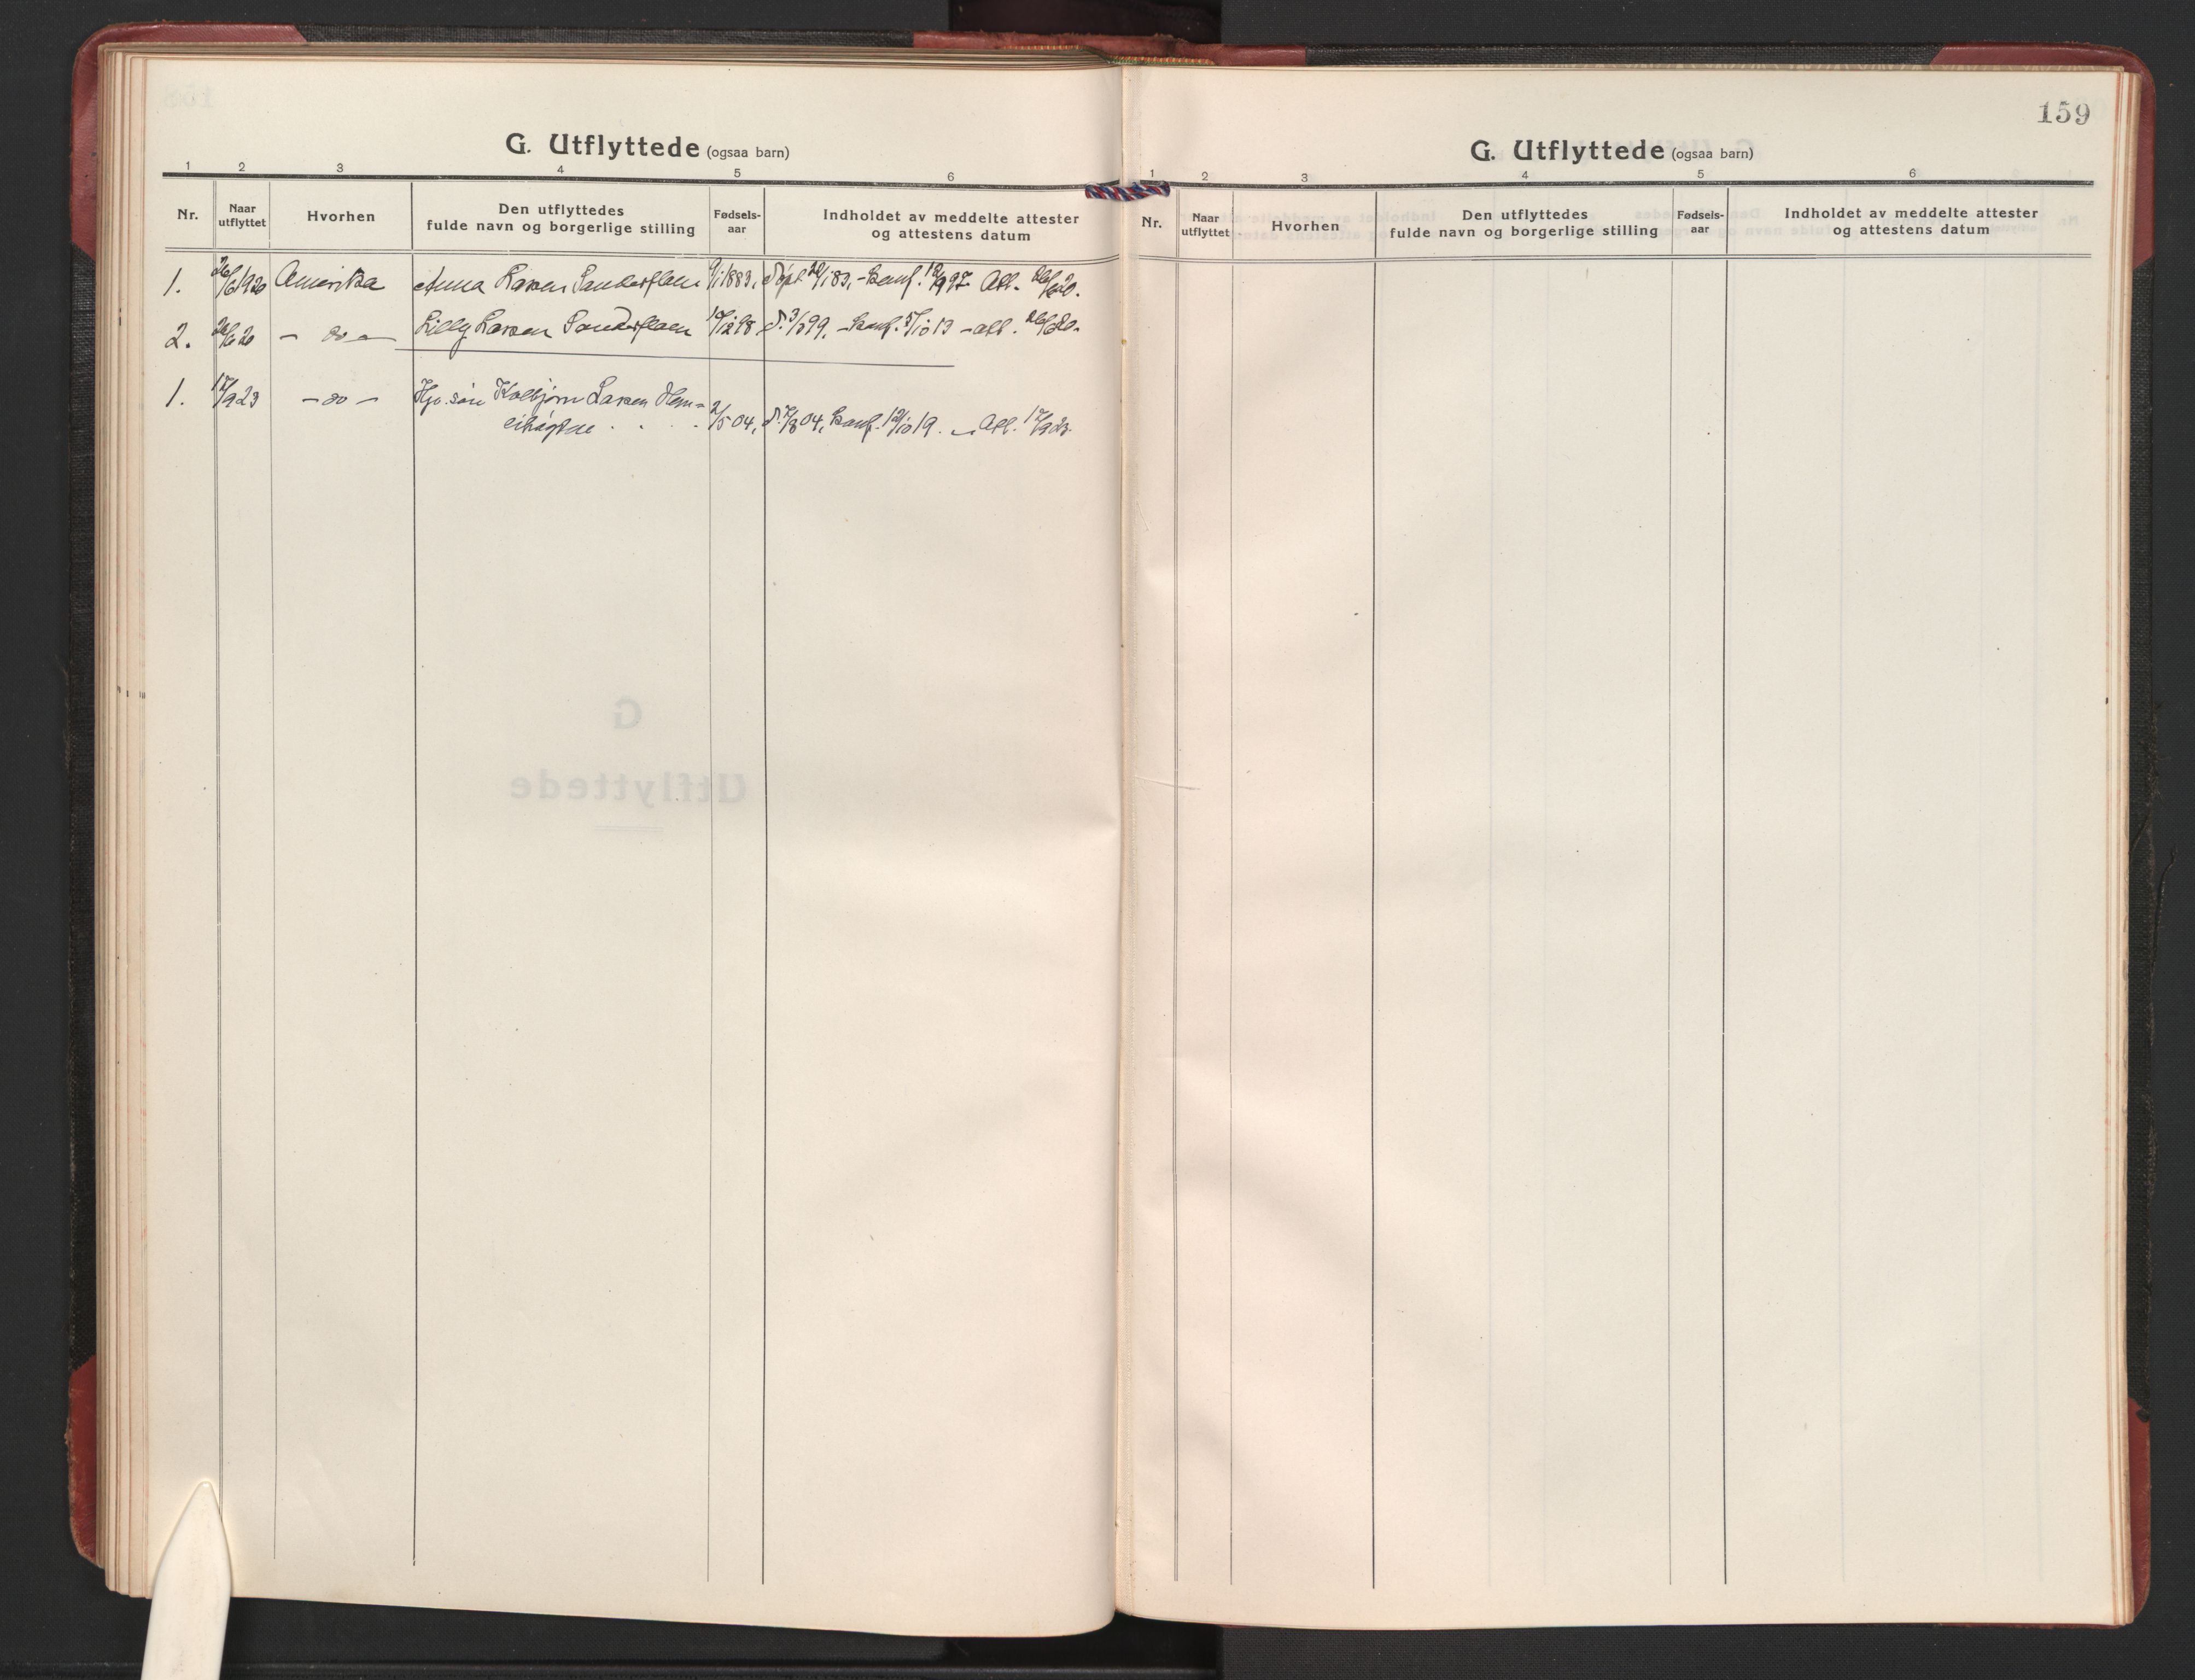 159
G. Utflyttede (ogsaa barn)
1 2 3 4 5 6
Nr. Naar utflyttet Hvorhen Den utflyttedes fulde navn og borgerlige stilling Fødsels-aar Indholdet av meddelte attester og attestens datum
1. 26/6 1920 Amerika Anna Larsen 9/1 1883, Døpt 20/1 83, - konf. 97 Att. 26/6 20.
2. 26/6 20 - do - Lilly Larsen 12 98, d. 99, - konf. 5/10 13 - att. 26/6 20.
1. 17/9 23 - do - søn Kolbjørn Larsen
2/5 04, d. 7/8 04, konf. 12/10 19. - Att. 17/9 23.
G. Utflyttede (ogsaa barn)
1 2 3 4 5 6
Nr. Naar utflyttet Hvorhen Den utflyttedes fulde navn og borgerlige stilling Fødsels-aar Indholdet av meddelte attester og attestens datum